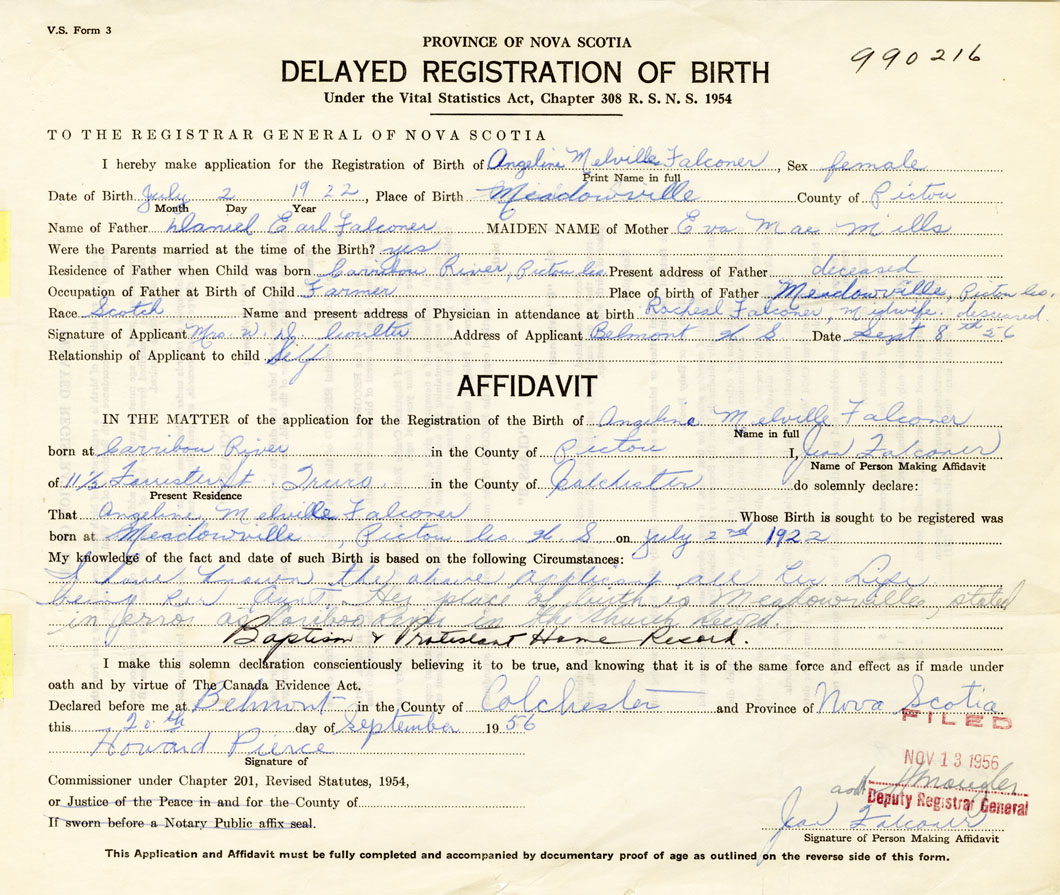 V.S. Form 3
PROVINCE OF NOVA SCOTIA
990216
DELAYED REGISTRATION OF BIRTH
Under the Vital Statistics Act, Chapter 308 R. S. N. S. 1954
TO THE REGISTRAR GENERAL OF NOVA SCOTIA
I hereby make application for the Registration of Birth of Angeline Melville Falconer, Sex female
Print Name in full
Date of Birth July 2 1922, Place of Birth Meadowville County of Pictou
Month Day Year
Name of Father Daniel Earl Falconer MAIDEN NAME of Mother Eva Mae Mills
Were the Parents married at the time of the Birth? yes
Residence of Father when Child was born Carribou River, Pictou Co. Present address of Father deceased
Occupation of Father at Birth of Child Farmer Place of birth of Father Meadowville, Pictou Co.
Race Scotch Name and present address of Physician in attendance at birth Racheal Falconer, Midwife.
Signature of Applicant Mrs. W. D. Coulter Address of Applicant Belmont N S Date Sept 8th 56
Relationship of Applicant to child Self
AFFIDAVIT
IN THE MATTER of the application for the Registration of the Birth of Angeline Melville Falconer
Name in full
born at Carribou River in the County of Pictou I, Jean Falconer
Name of Person Making Affidavit
of 11½ Forrester st. Truro in the County of Colchester do solemnly declare:
Present Residence
That Angeline Melville Falconer Whose Birth is sought to be registered was
born at Meadowville, Pictou Co. N S on July 2nd 1922
My knowledge of the fact and date of such Birth is based on the following Circumstances:
I have known the above applicant all her Life
being her Aunt. Her place of birth is Meadowville, stated
in error as Caribou River in the church record.
Baptism & Protestant Home Record.
I make this solemn declaration conscientiously believing it to be true, and knowing that it is of the same force and effect as if made under
oath and by virtue of The Canada Evidence Act.
Declared before me at Belmont in the County of Colchester and Province of Nova Scotia
this 20th day of September 1956
FILED
Howard Pierce
Signature of
NOV 13 1956
Commissioner under Chapter 201, Revised Statutes, 1954,
or Justice of the Peace in and for the County of
Deputy Registrar General
If sworn before a Notary Public affix seal.
Jean Falconer
Signature of Person Making Affidavit
This Application and Affidavit must be fully completed and accompanied by documentary proof of age as outlined on the reverse side of this form.